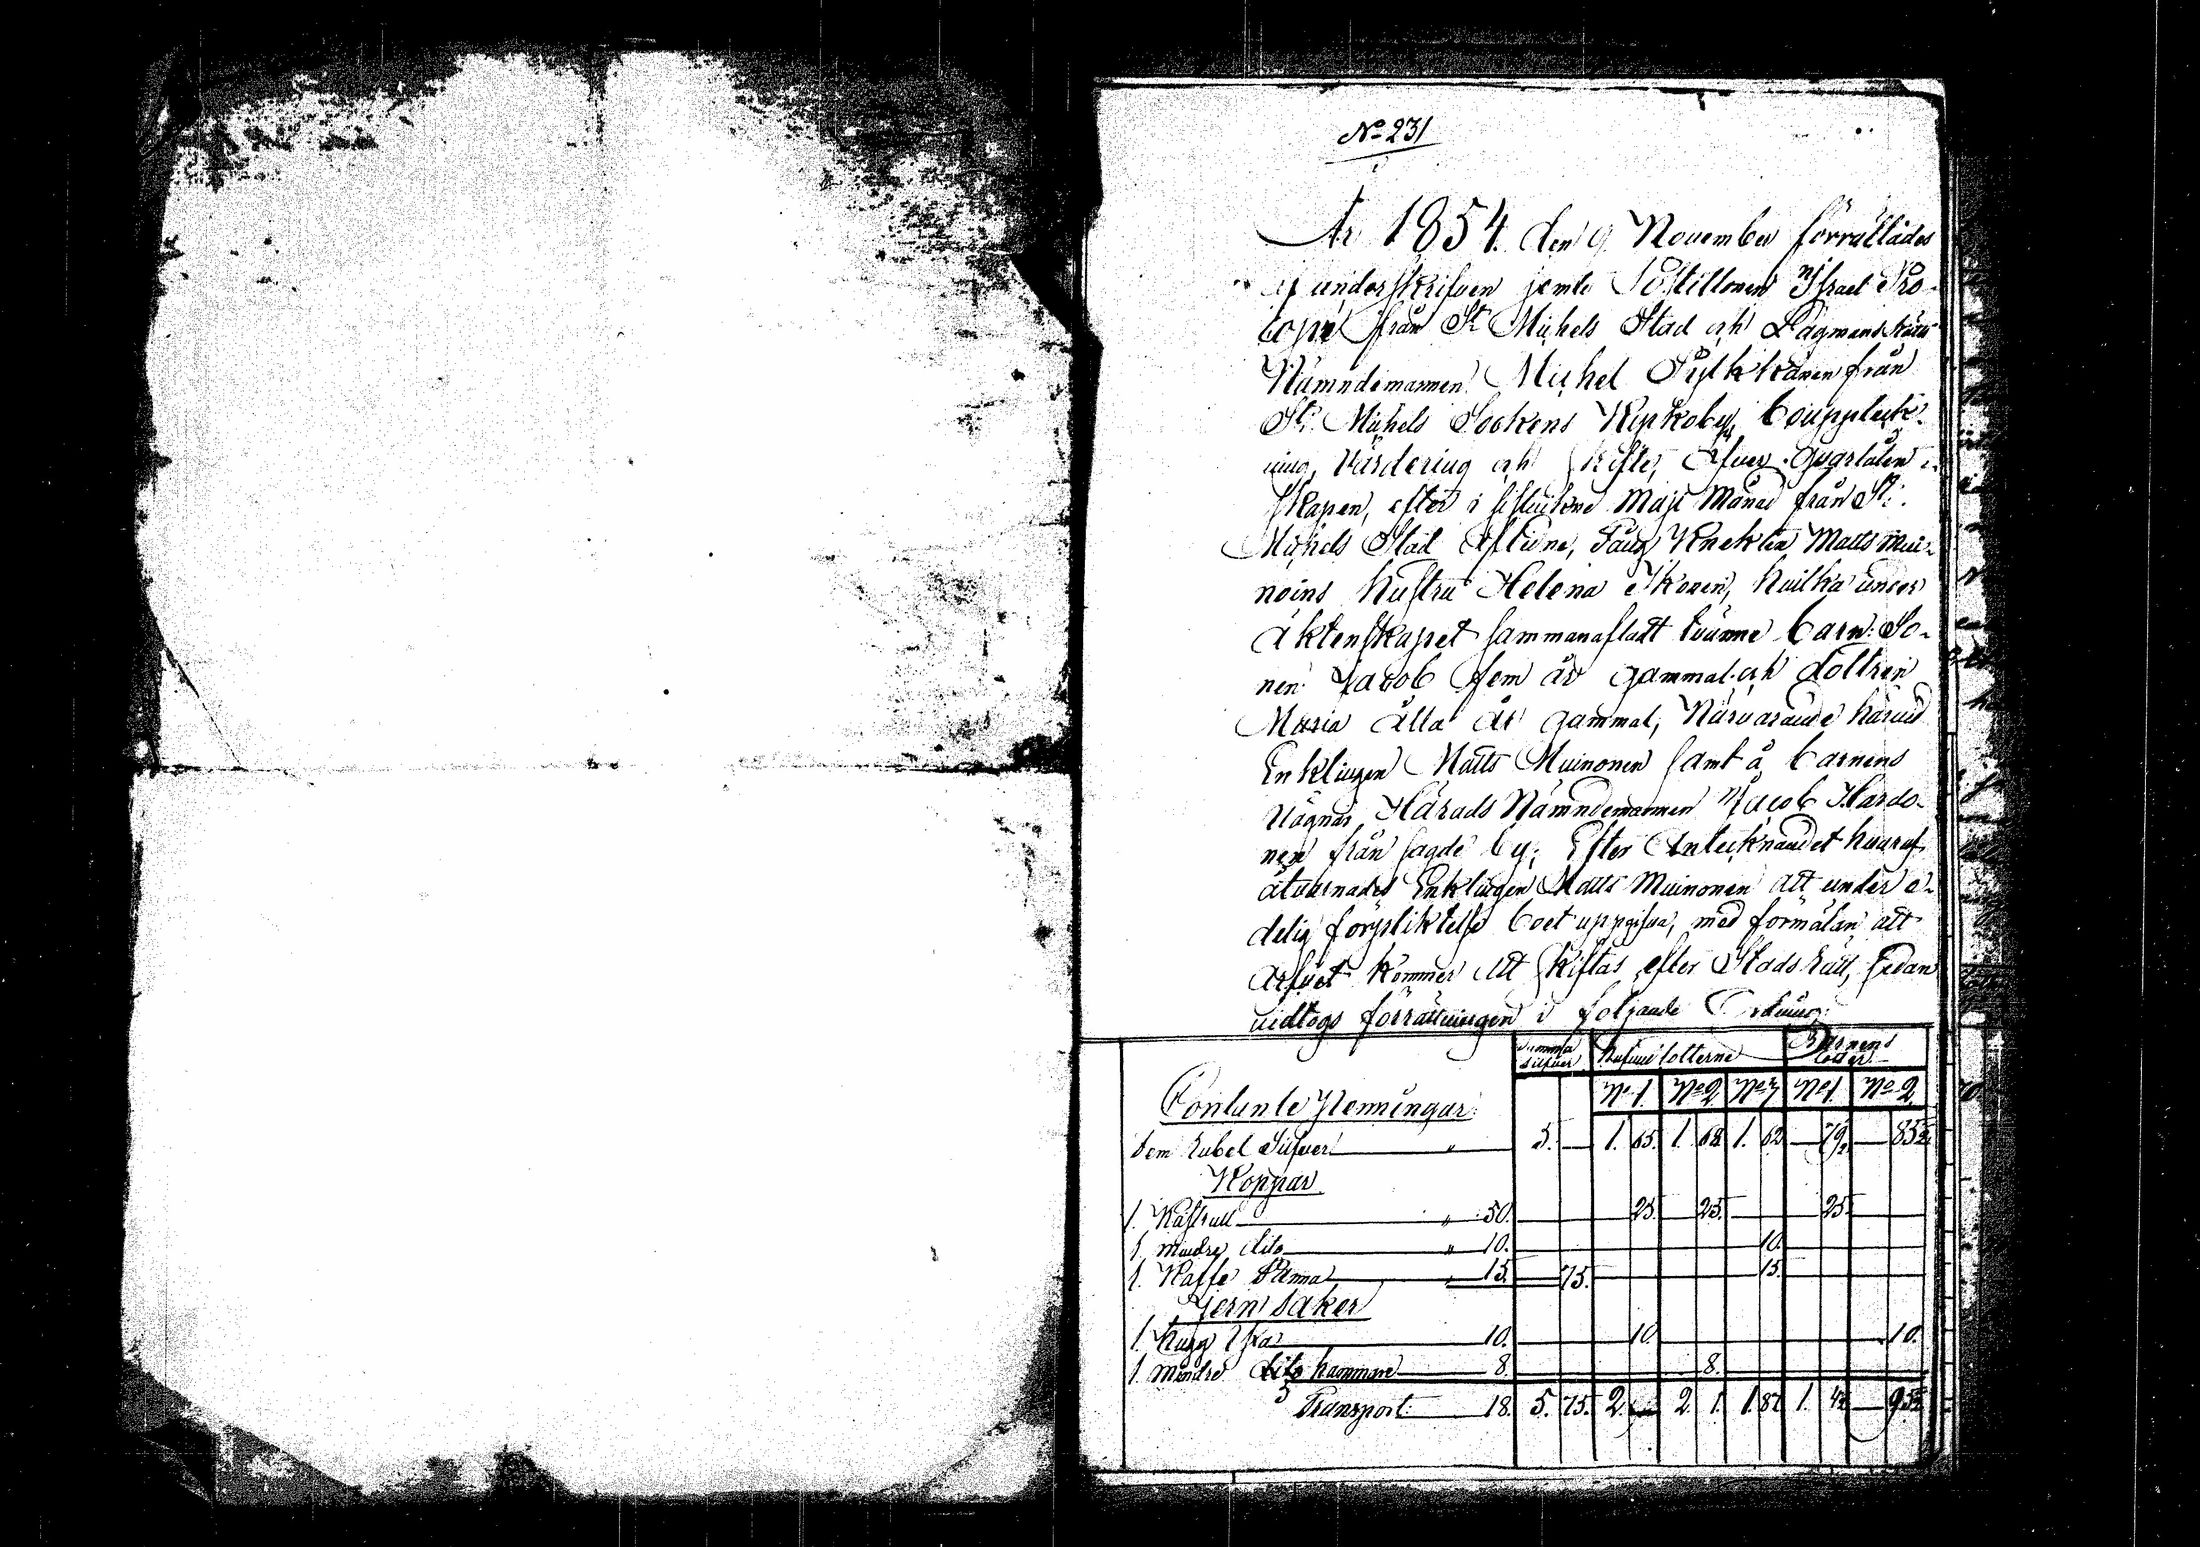 No 231
År 1854. den 9. November förrättades
af underskrifven jemte Postillonen Israel Pro-
topai från St Michels Stad och Lagmans Rätts
Nämndemannen Michel Pylkkänen från
St. Michels Sockens Kepkoby, bouppteck-
ning, Värdering och skifte, öfver qvarlåten-
skapen, efter i sistledne Maji Månad från St.
Michels Stad aflidne, Knekten Matts Mui-
noins hustru Helena Ikonen, hvilka under
äktenskapet sammanaflat tvänne barn: So-
nen Jacob fem år gammal och dottren
Maria åtta år gammal, Närvarande härvid
Enklingen Matts Muinonen samt å barnens
vägnar Härads Nämndemannen Jacob Hardo-
nen från sagde by; Efter Antecknandet hvaraf
åtvarnades Enklingen Matts Muinonen att under e-
delig förpliktelse boet uppgifva, med förmälan att
arfvet kommer att skiftas efter Stads Rätt, sedan
vidtogs förrättningen i följande Ordning:
Summa Silfver Hufvud lotterne Barnens lotter
No 1. No 2 No 3 No 1. No 2.
Contante Penningar:
Fem Rubel Silfver " 5. — 1. 65. 1. 68. 1. 62. — 79½ — 85½
Koppar
1. Kastrull " 50. 25. 25. 25.
1. mindre dito " 10. 10.
1. Kaffe Panna " 15. 75. 15.
Jern saker
1. hugg Yxa 10. 10. 10.
1. mindre dito hammare 8. 8.
Transport 18. 5. 75. 2. — 2. 1. 1. 87. 1. 4½ — 95½